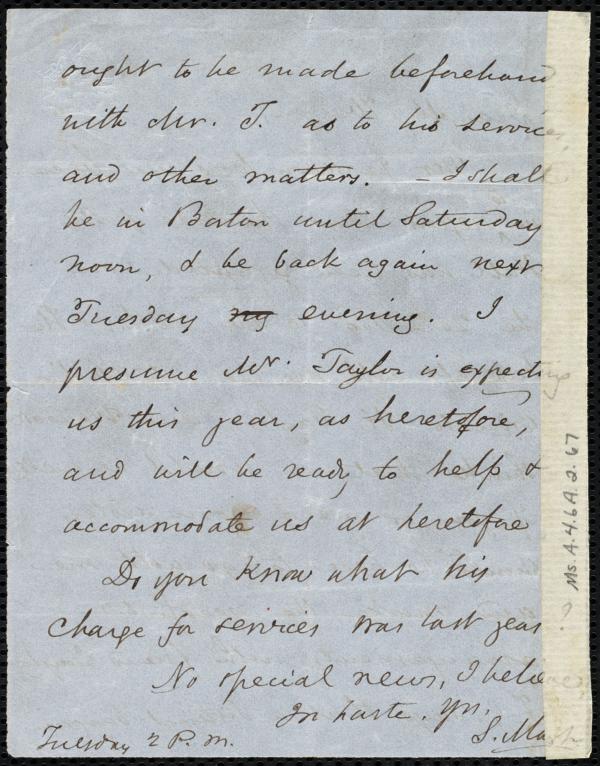 ought to be made beforehand
with Mr. T. as to his services,
and other matters. – I shall
be in Boston until Saturday
noon, & be back again next
Tuesday my evening. I
presume Mr. Taylor is expecting
us this year, as heretofore,
and will be ready to help &
accommodate us at heretofore
Do you know what his
charge for services was last year?
No special news, I believe,
In haste. Yrs,
S. May
Tuesday 2 P.M.
Ms.A.4.6A.2.67